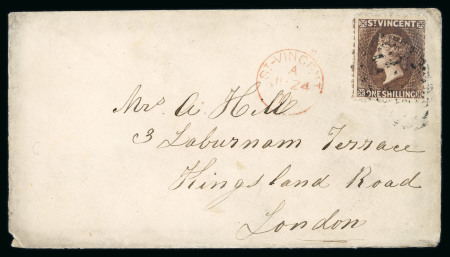 ST. VINCENT
ONE SHILLING
ST-VINCENT
A
24
Mrs A. Hill
3 Laburnam Terrace
Kingsland Road
London